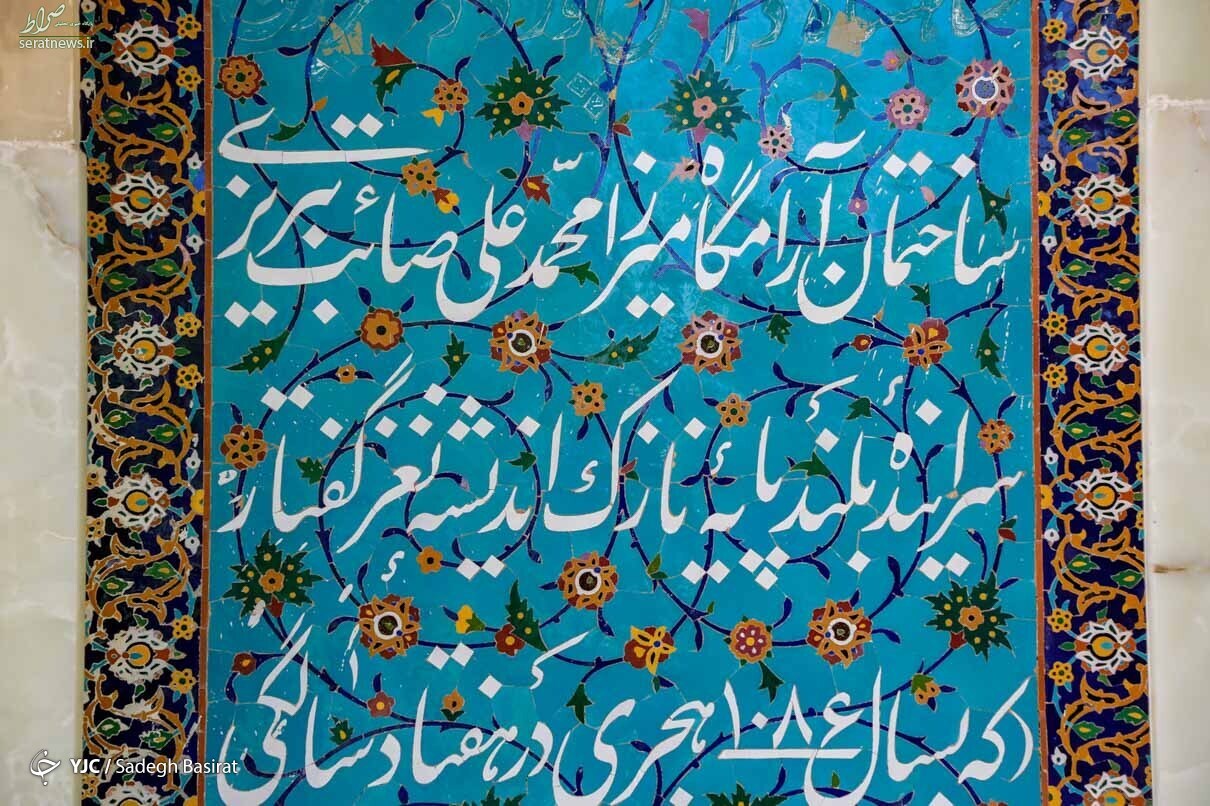 صراط
seratnews.ir
ساختمان آرامگاه میرزا محمّد علی صائب تبریزی
سراینده بلند پایه نازک اندیشه نغز گفتار
(که بسال ۱۰۸۶ هجری در هفتاد سالگی
YJC / Sadegh Basirat